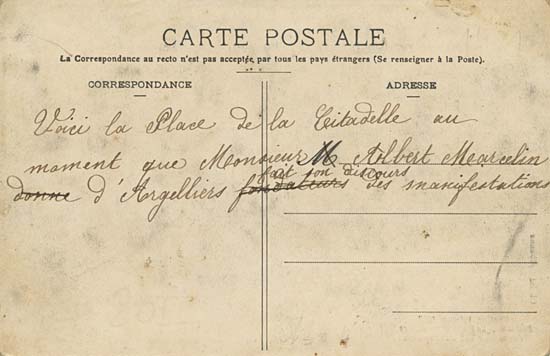 CARTE POSTALE
La Correspondance au recto n'est pas acceptée par tous les pays étrangers (Se renseigner à la Poste).
CORRESPONDANCE
ADRESSE
Voici la Place de la Citadelle au
moment que Monsieur M. Albert Marcelin
fait son discours
donne d'Argelliers fondateurs des manifestations